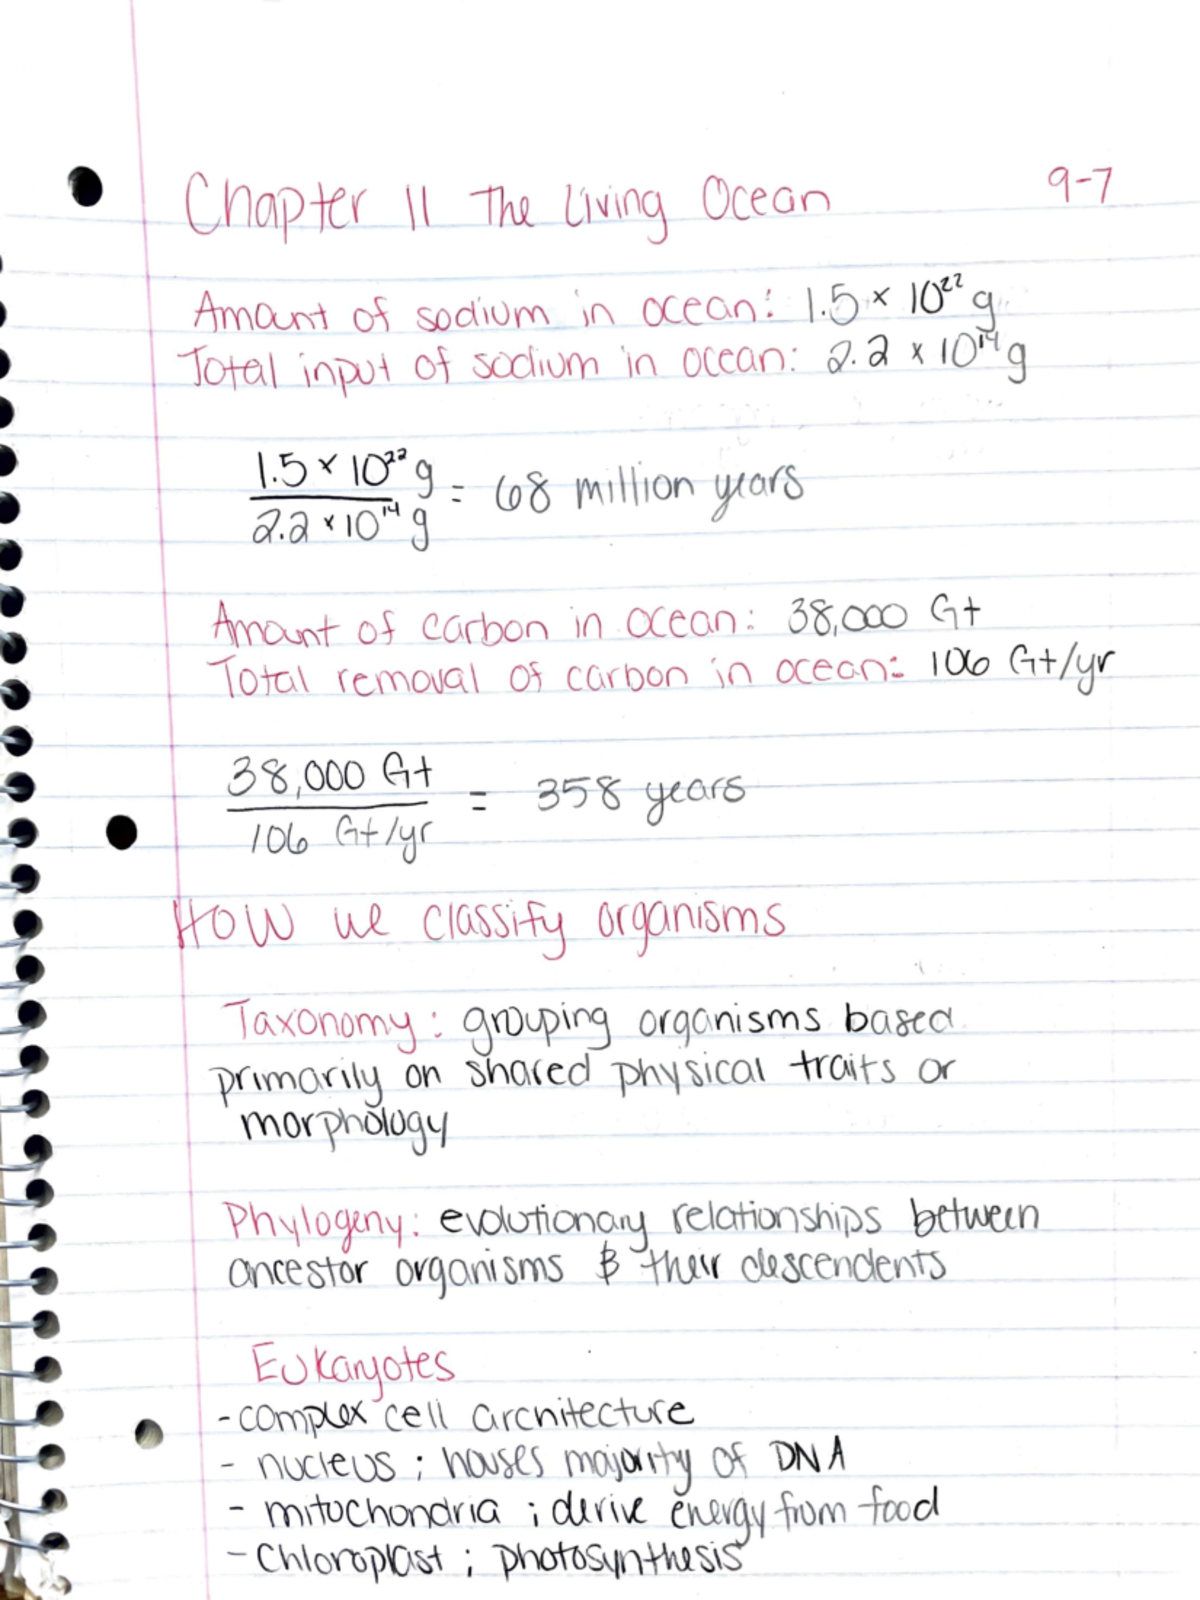 Chapter 11 The Living Ocean 9-7
Amount of sodium in ocean: 1.5 × 10²² g
Total input of sodium in ocean: 2.2 × 10¹⁴ g
1.5 × 10²² g
2.2 × 10¹⁴ g
= 68 million years
Amount of carbon in ocean: 38,000 Gt
Total removal of carbon in ocean: 106 Gt/yr
38,000 Gt
106 Gt/yr
= 358 years
How we classify organisms
Taxonomy: grouping organisms based
primarily on shared physical traits or
morphology
Phylogeny: evolutionary relationships between
ancestor organisms & their descendents
Eukaryotes
- complex cell architecture
- nucleus ; houses majority of DNA
- mitochondria ; derive energy from food
- Chloroplast ; photosynthesis